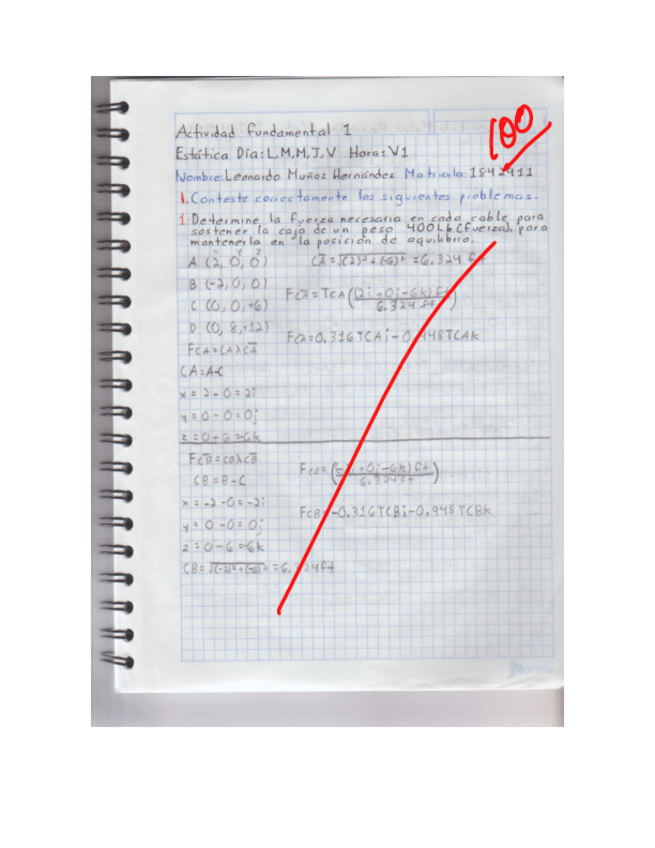 100
Actividad fundamental 1
Estática Día: L,M,M,J,V Hora: V1
Nombre: Leonardo Muñoz Hernández Matrícula: 1842411
1. Conteste correctamente los siguientes problemas.
1. Determine la fuerza necesaria en cada cable para
sostener la caja de un peso 400Lb (fuerza), para
mantenerla en la posición de equilibrio.
x y z
A (2, 0, 0)
B (-2, 0, 0)
C (0, 0, +6)
D (0, 8, +12)
FCA = CAλCA
CA = A-C
x = 2 - 0 = 2i
y = 0 - 0 = 0j
z = 0 + 6 = -6k
CA = √(2)² + (-6)² = 6.324 ft
FCA = TCA (2i + 0j - 6k) ft
6.324 ft
FCA = 0.316 TCAi - 0.948 TCAk
FCB = CBλCB
CB = B - C
x = -2 - 0 = -2i
y = 0 - 0 = 0j
z = 0 - 6 = -6k
CB = √(-2)² + (-6)² = 6.324 ft
FCB = (-2i + 0j - 6k) ft
6.324 ft
FCB = -0.316 TCBi - 0.948 TCBk
Norma